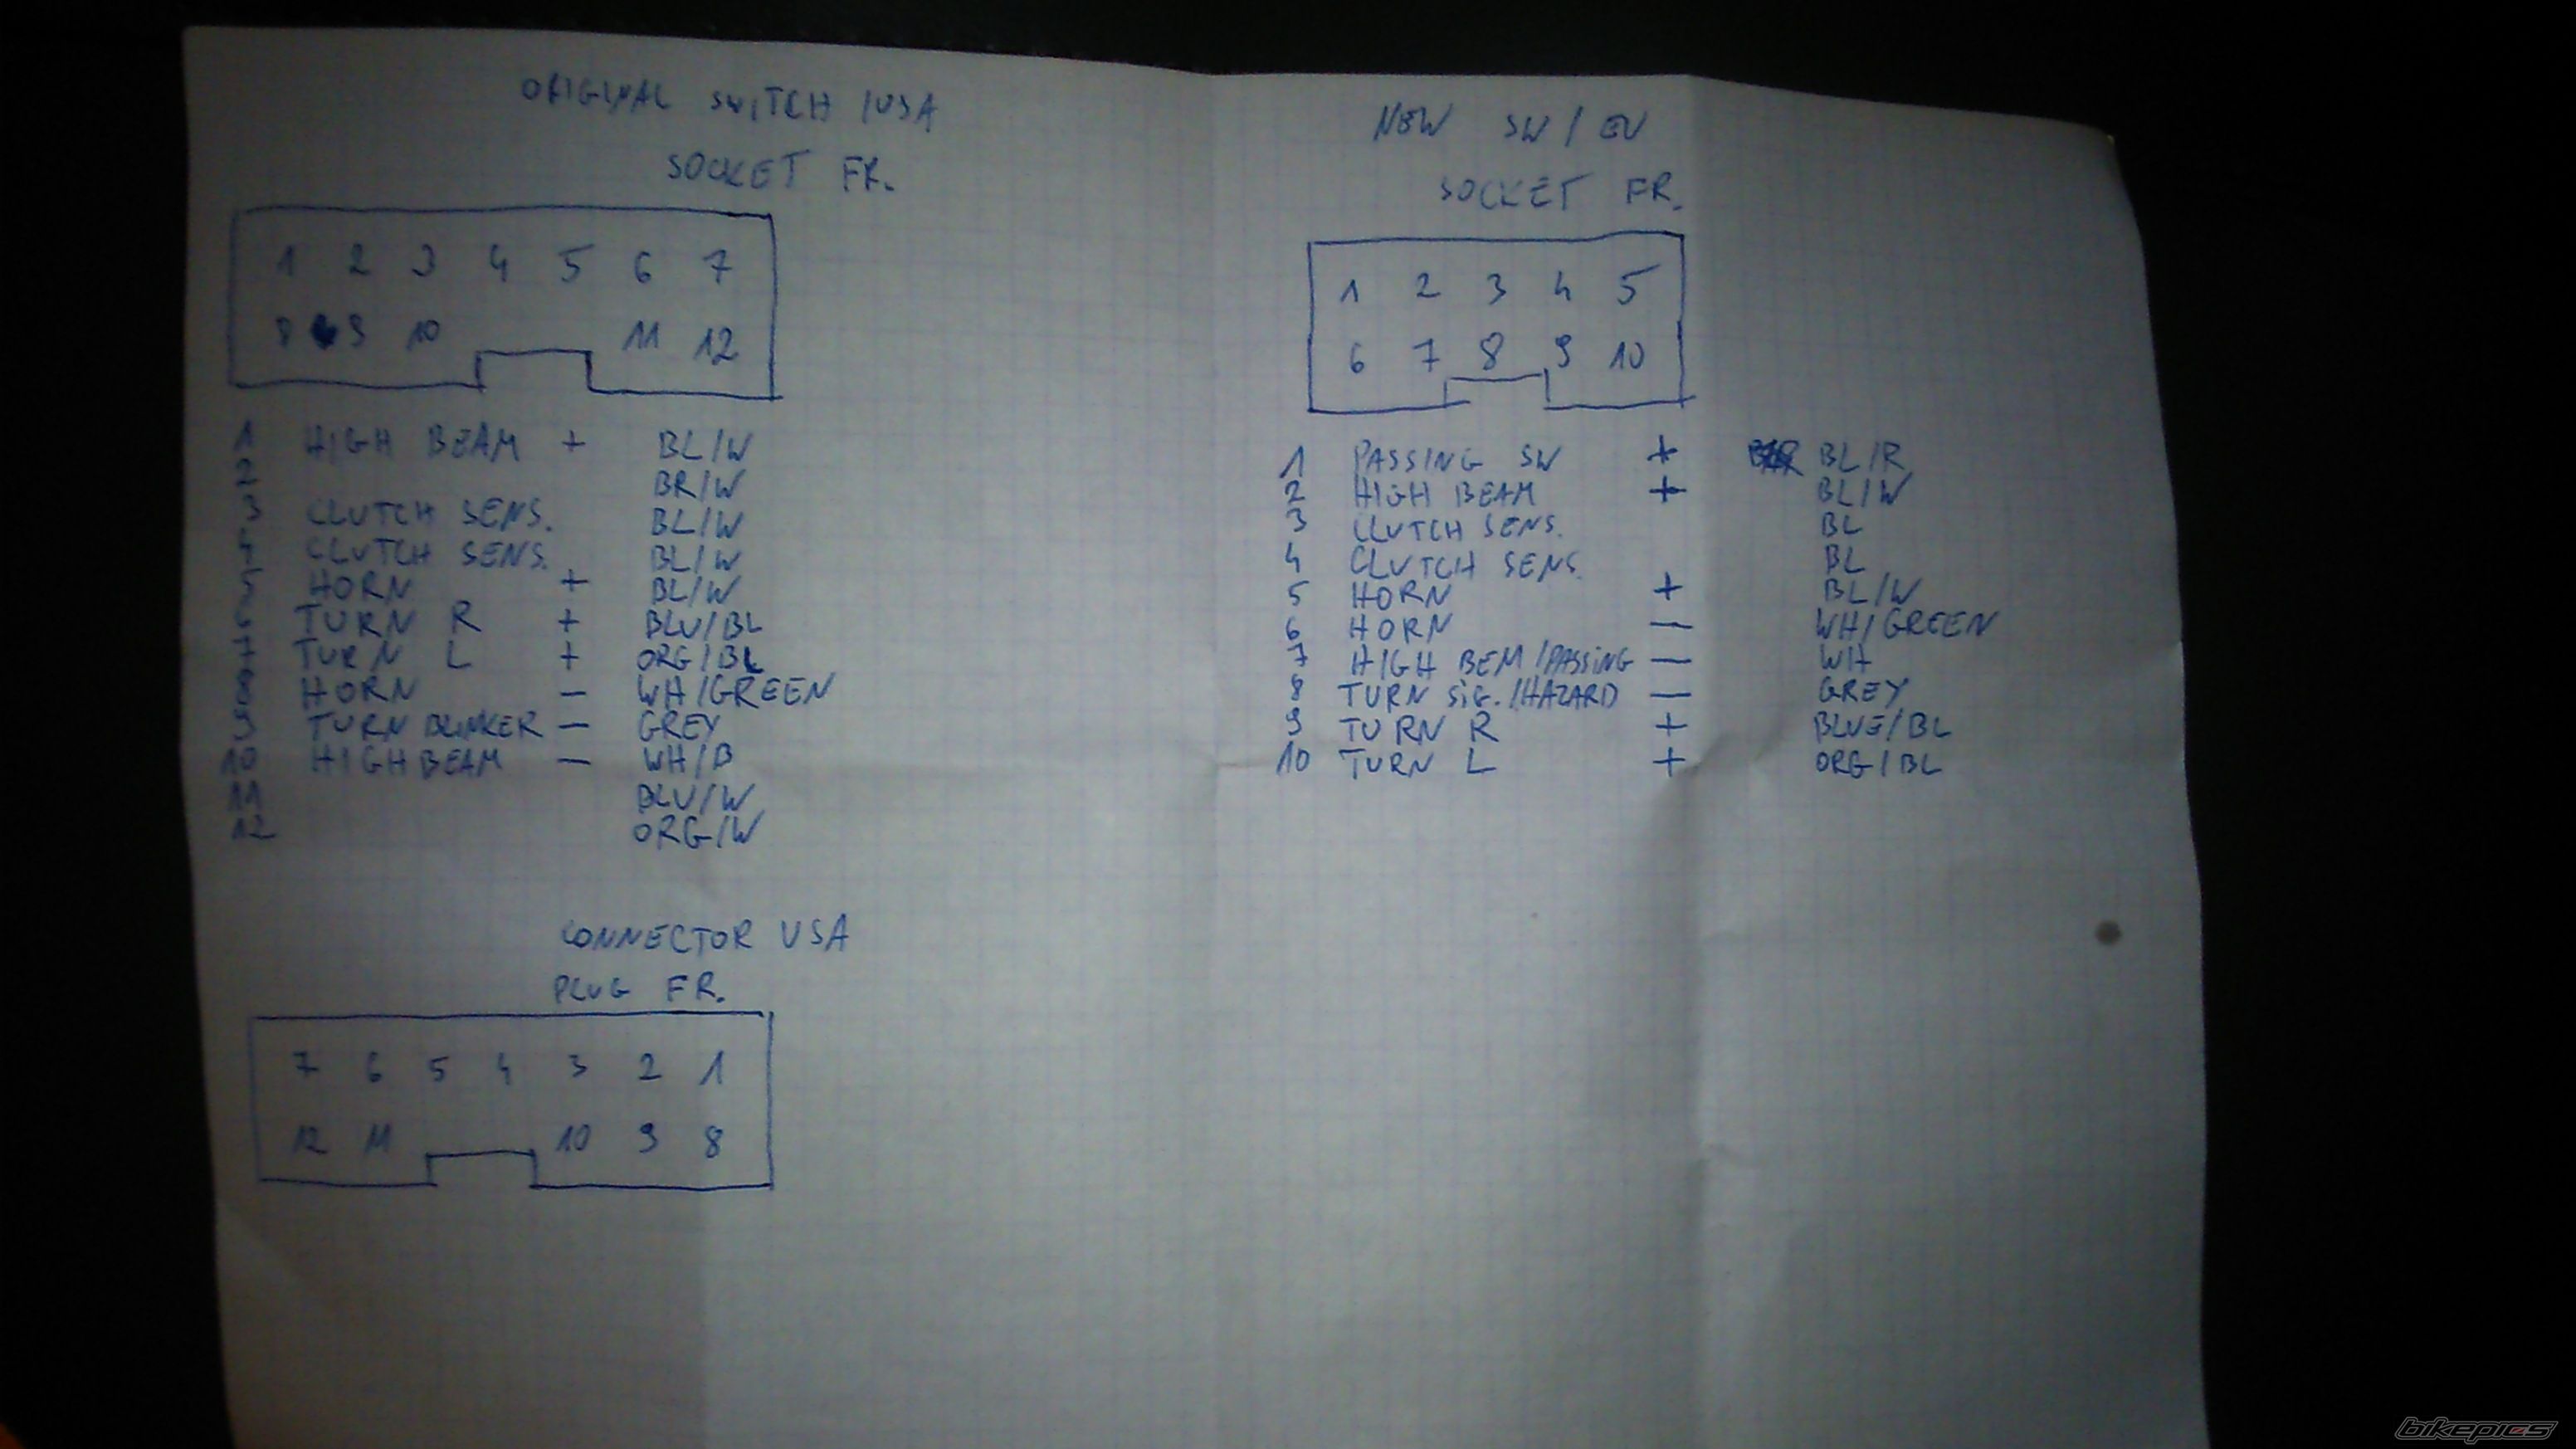 ORIGINAL SWITCH /USA
SOCKET FR.
1 2 3 4 5 6 7
8 9 10 11 12
1 HIGH BEAM + BL/W
2 BR/W
3 CLUTCH SENS. BL/W
4 CLUTCH SENS. BL/W
5 HORN + BL/W
6 TURN R + BLU/BL
7 TURN L + ORG/BL
8 HORN — WH/GREEN
9 TURN BLINKER — GREY
10 HIGH BEAM — WH/B
11 BLU/W
12 ORG/W
CONNECTOR USA
PLUG FR.
7 6 5 4 3 2 1
12 11 10 9 8
NEW SW / EU
SOCKET FR.
1 2 3 4 5
6 7 8 9 10
1 PASSING SW + BL/R
2 HIGH BEAM + BL/W
3 CLUTCH SENS. BL
4 CLUTCH SENS. BL
5 HORN + BL/W
6 HORN — WH/GREEN
7 HIGH BEM /PASSING — WH
8 TURN SIG. /HAZARD — GREY
9 TURN R + BLUE/BL
10 TURN L + ORG/BL
bikepics